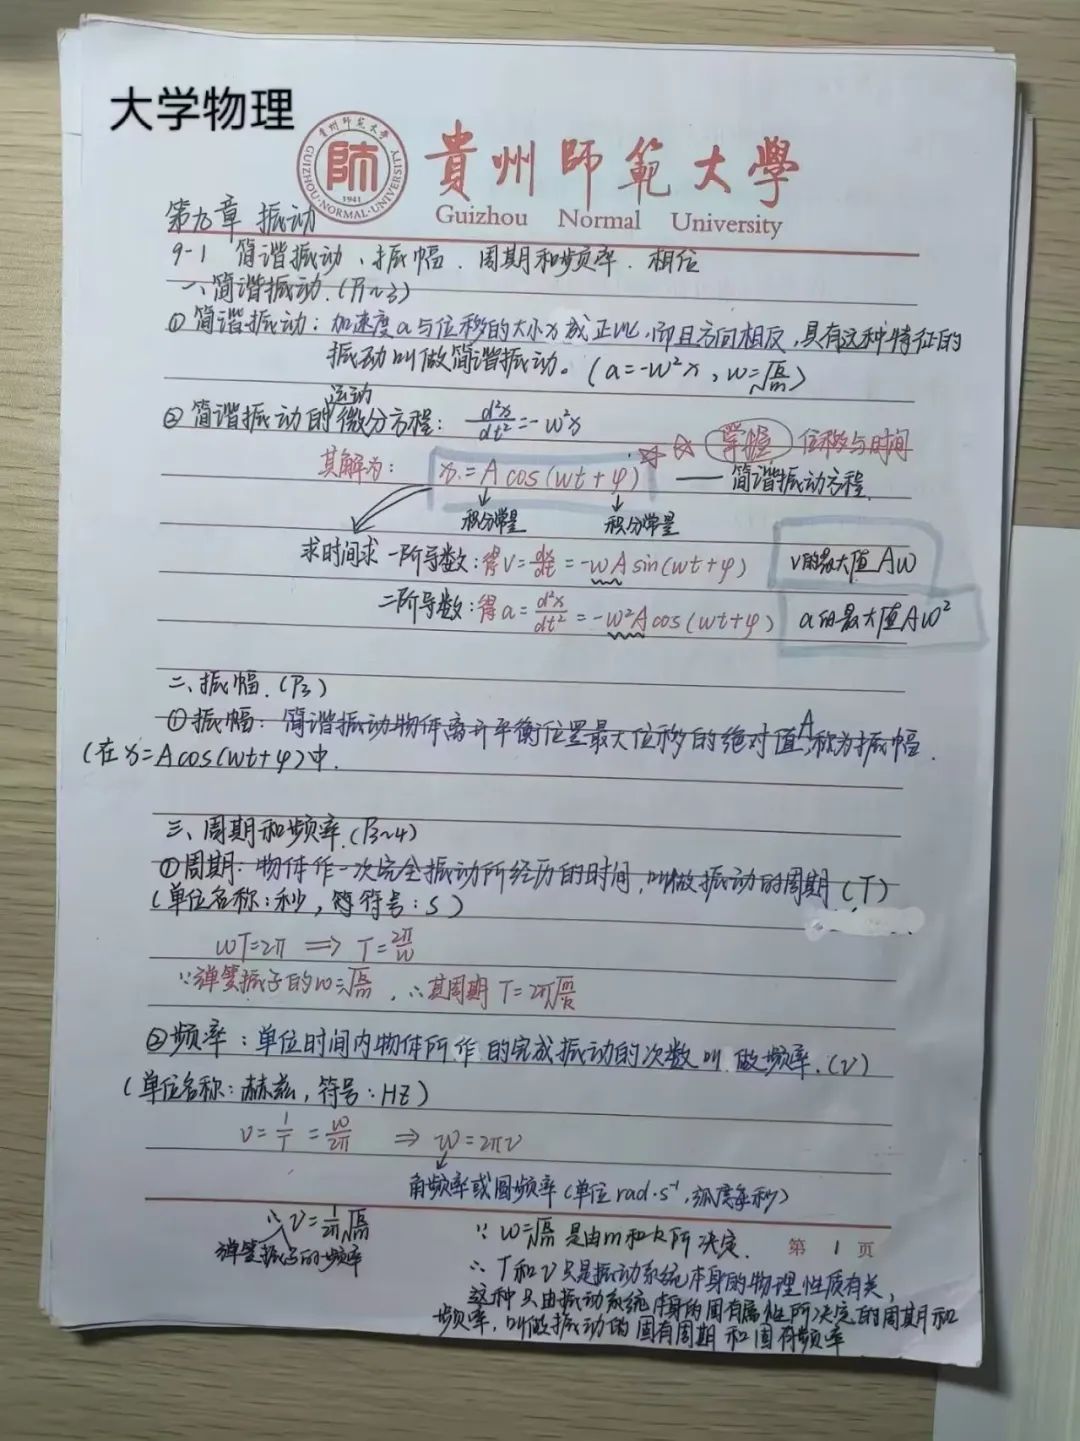 大学物理
貴州師範大學
Guizhou Normal University
貴州師範大學
GUIZHOU·NORMAL·UNIVERSITY
1941
第九章 振动
9-1 简谐振动、振幅、周期和频率、相位
一、简谐振动.(P1~3)
① 简谐振动：加速度a与位移的大小x成正比,而且方向相反,具有这种特征的
振动叫做简谐振动。(a=-w²x, w=√(k/m))
② 简谐振动的运动微分方程: d²x/dt²=-w²x
其解为: x=Acos(wt+φ) ☆☆ 掌握 位移与时间
——简谐振动方程.
积分常量 积分常量
求时间求一阶导数:得v=dx/dt=-wAsin(wt+φ) v的最大值Aw
二阶导数:得a=d²x/dt²=-w²Acos(wt+φ) a的最大值Aw²
二、振幅.(P3)
①振幅: 简谐振动物体离开平衡位置最大位移的绝对值A,称为振幅.
(在x=Acos(wt+φ)中.
三、周期和频率.(P3~4)
①周期: 物体作一次完全振动所经历的时间,叫做振动的周期(T)
(单位名称:秒, 符号:S)
wT=2π ⇒ T=2π/w
∵弹簧振子的w=√(k/m), ∴其周期T=2π√(m/k)
②频率:单位时间内物体所作的完成振动的次数叫做频率.(ν)
(单位名称:赫兹,符号:HZ)
ν=1/T=w/2π ⇒ w=2πν
角频率或圆频率(单位rad·s⁻¹,弧度每秒)
∴ν=1/2π√(k/m)
弹簧振子的频率
∵ w=√(k/m)是由m和k所决定.
第 1 页
∴ T和ν只是振动系统本身的物理性质有关,
这种只由振动系统本身的固有属性所决定的周期和
频率,叫做振动的固有周期和固有频率